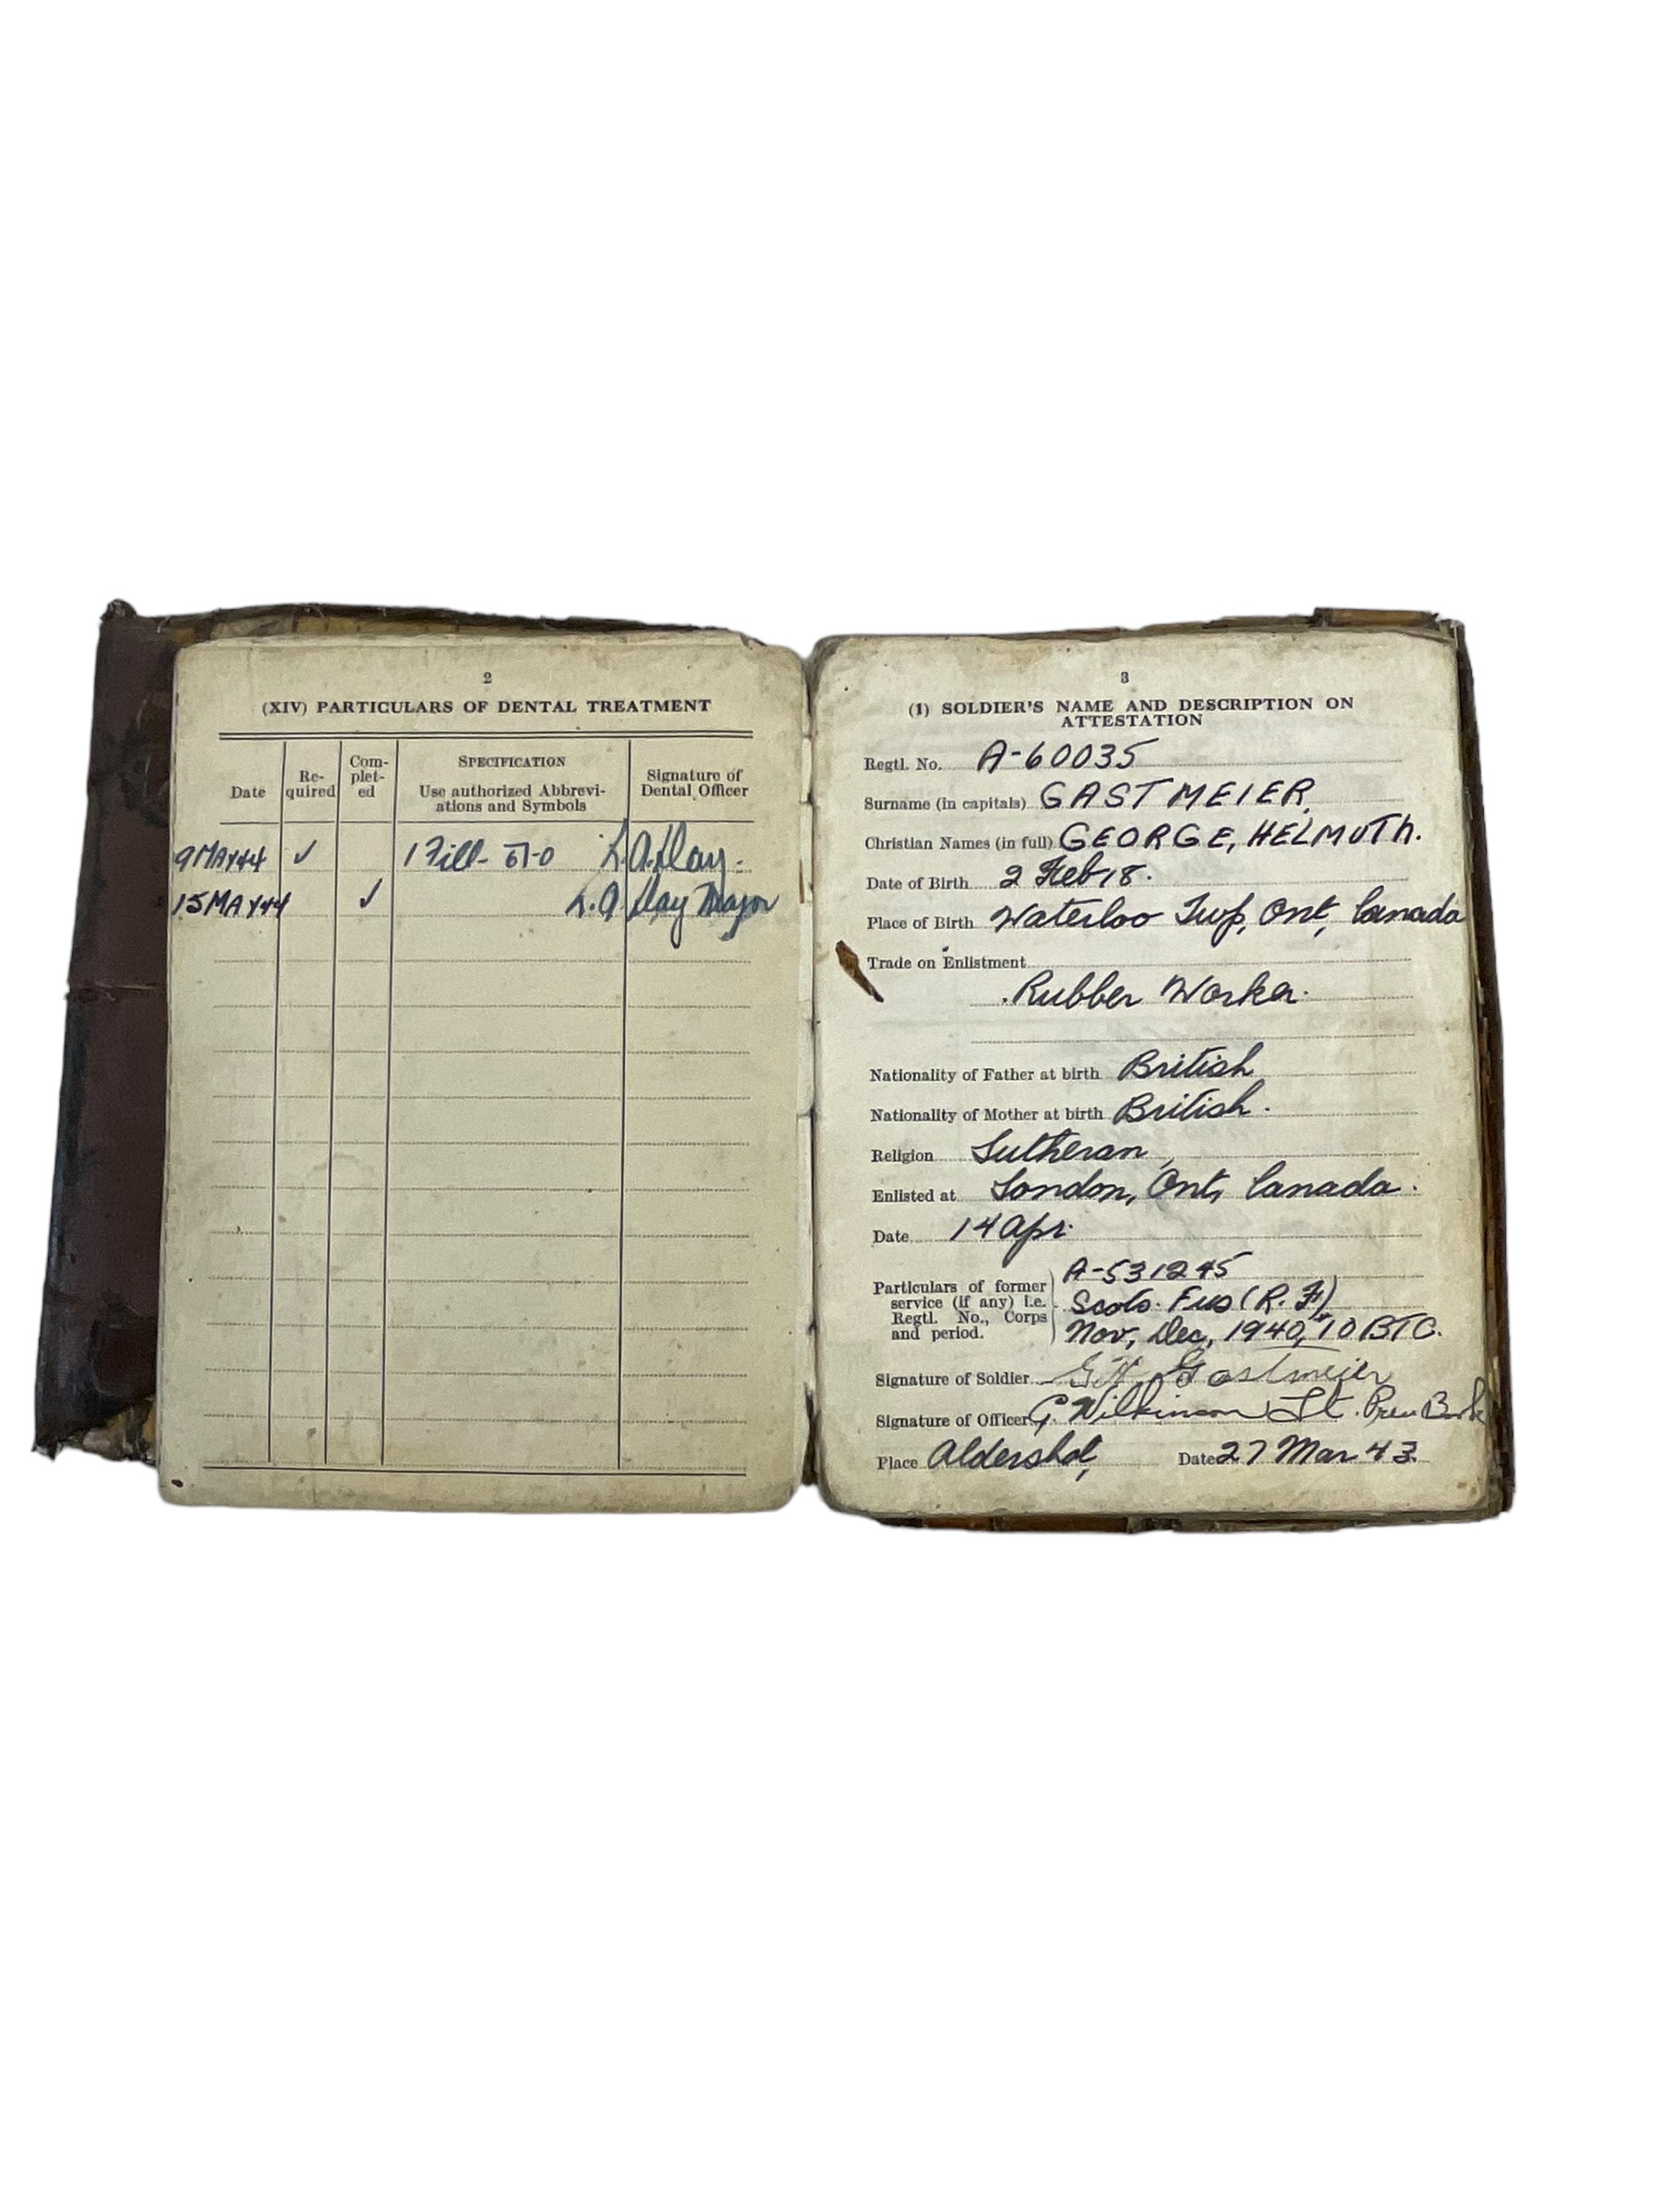 2
(XIV) PARTICULARS OF DENTAL TREATMENT
Date
Re-
quired
Com-
plet-
ed
SPECIFICATION
Use authorized Abbrevi-
ations and Symbols
Signature of
Dental Officer
9 MAY 44 ✓ 1 Fill- 6-0 L.A. Day
15 MAY 44 ✓ L.A. Day Major
3
(1) SOLDIER'S NAME AND DESCRIPTION ON
ATTESTATION
Regtl. No. A-60035
Surname (in capitals) GASTMEIER
Christian Names (in full) GEORGE, HELMUTH.
Date of Birth 2 Feb 18.
Place of Birth Waterloo Twp, Ont, Canada
Trade on Enlistment
Rubber Worker.
Nationality of Father at birth British
Nationality of Mother at birth British.
Religion Lutheran,
Enlisted at London, Ont, Canada.
Date 14 Apr.
Particulars of former
service (if any) i.e.
Regtl. No., Corps
and period.
A-531245
Scots. Fus (R.F.)
Nov, Dec, 1940, 10 BTC.
Signature of Soldier G H Gastmeier
Signature of Officer G Wilkinson Lt.
Place Aldershot, Date 27 Mar 43.